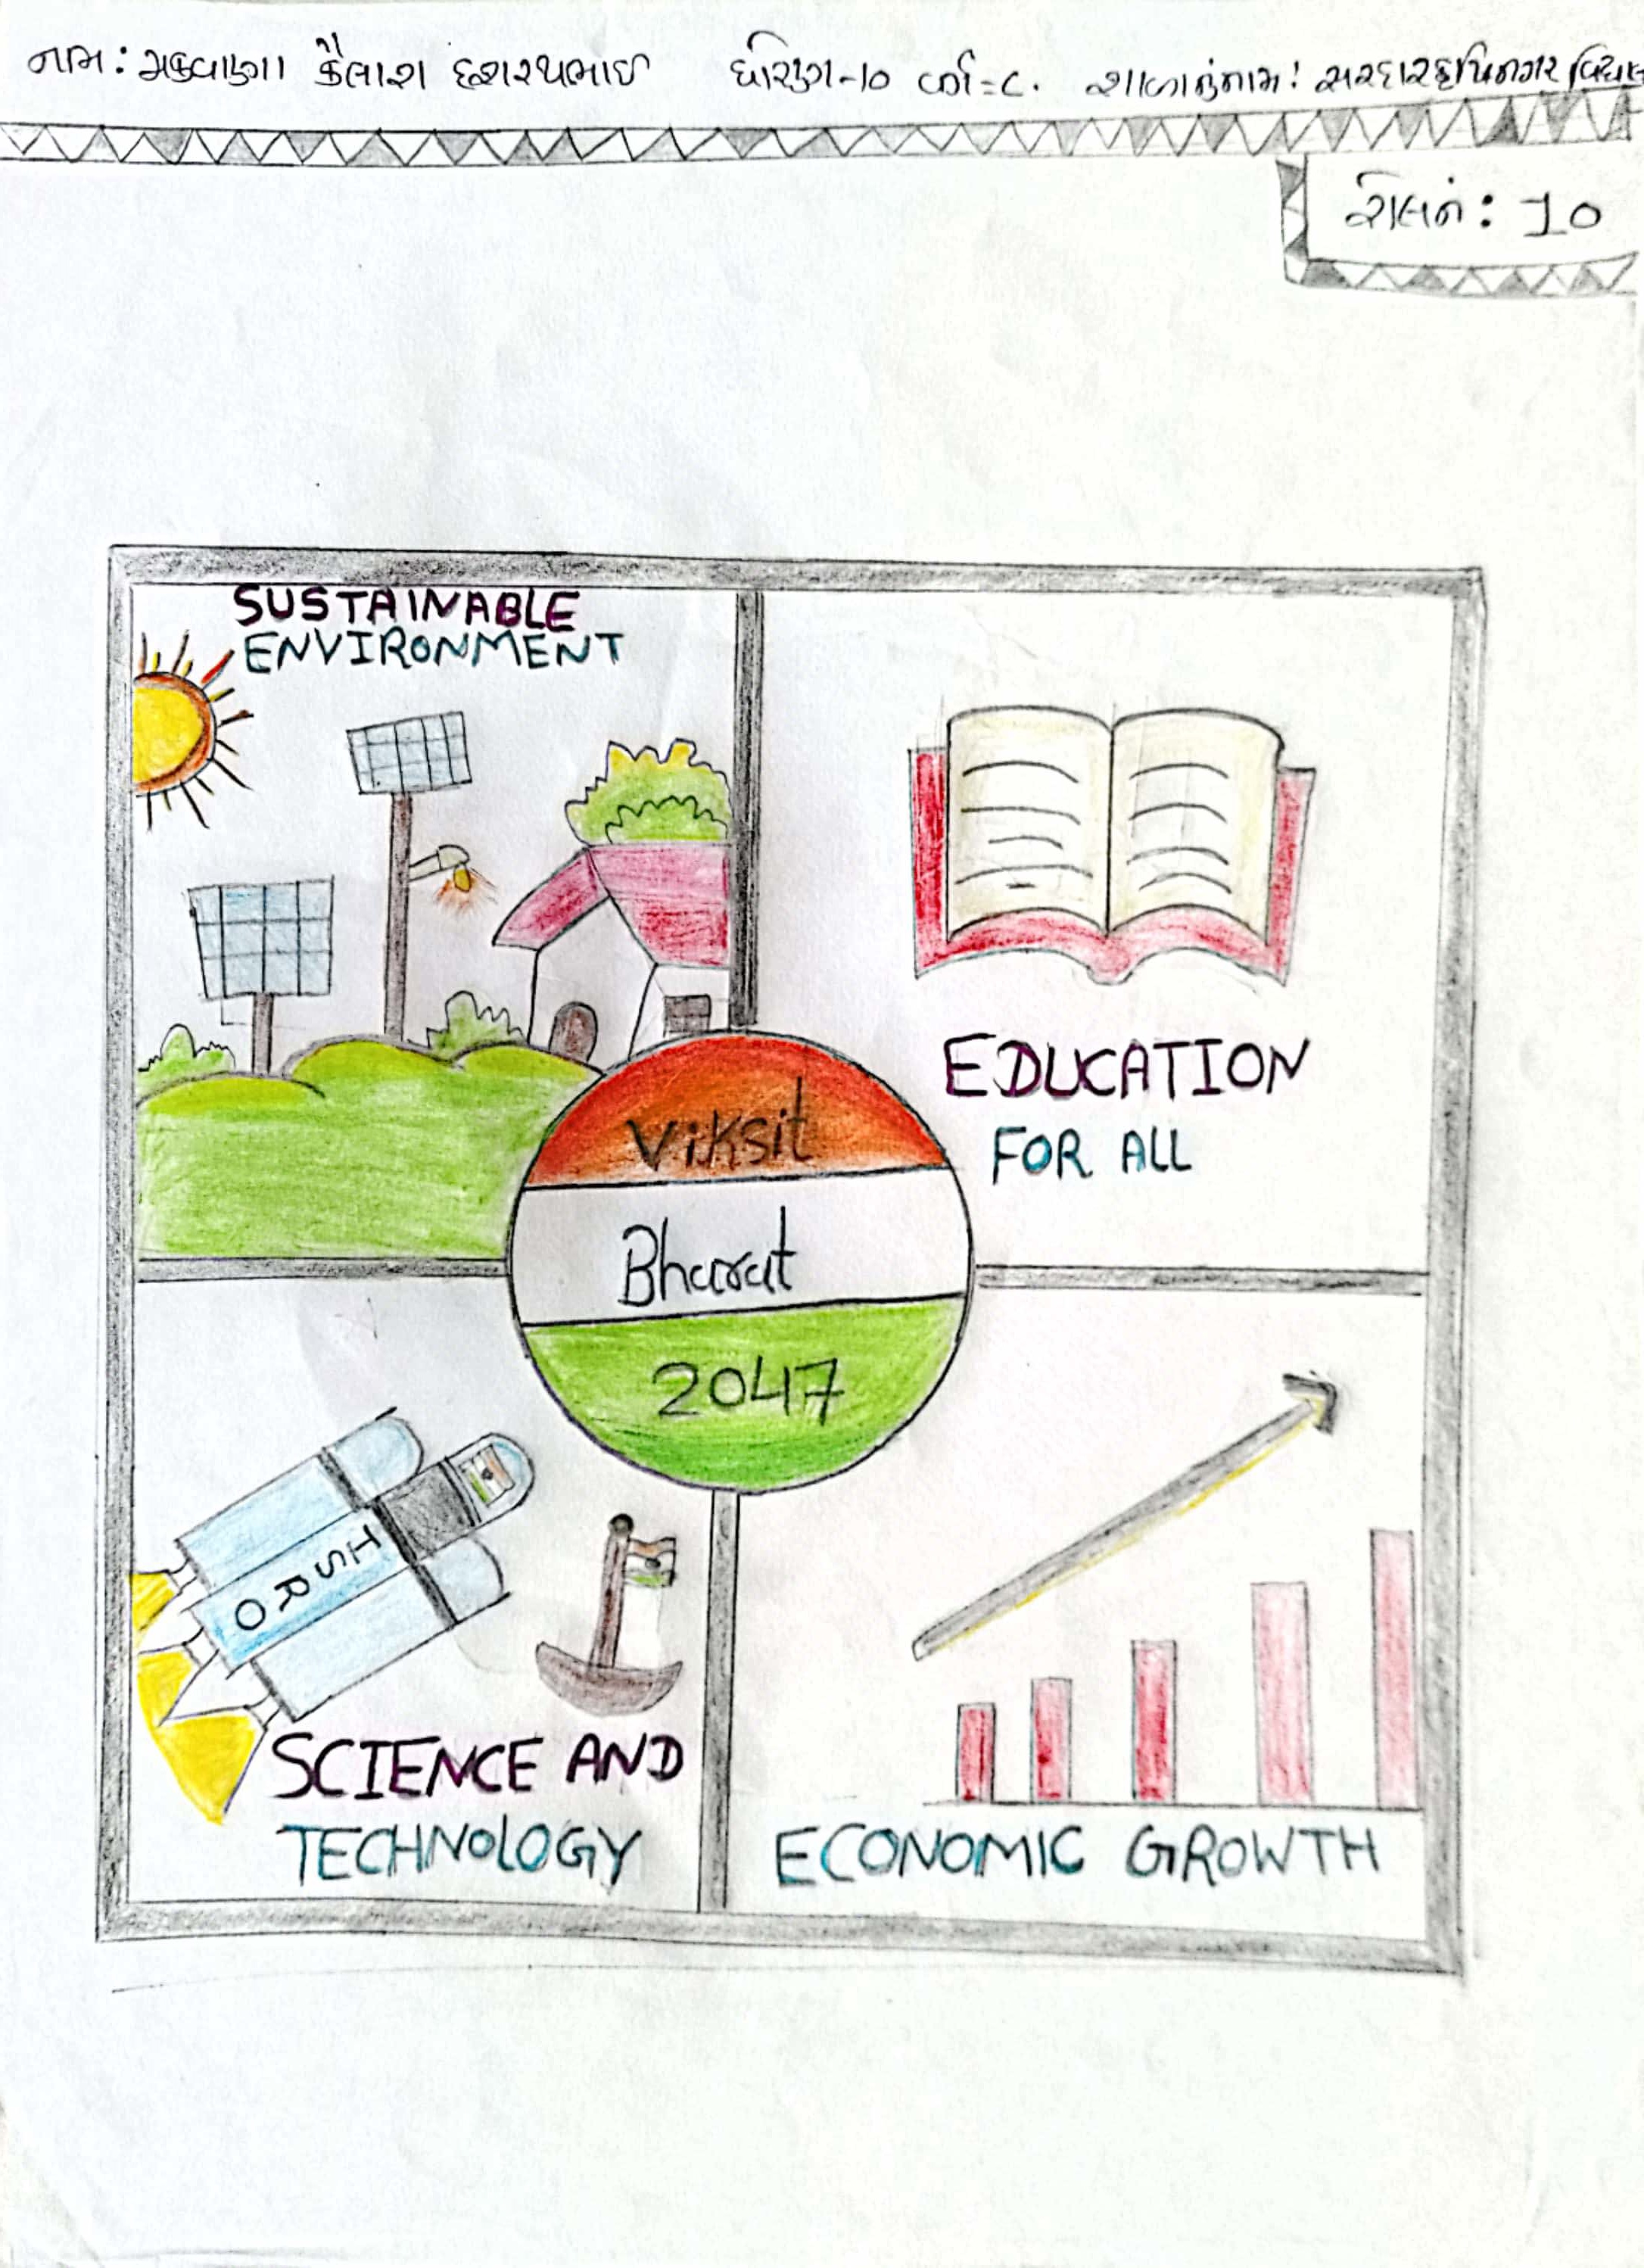 નામ: મકવાણા કૈલાશ દશરથભાઈ ધોરણ-૧૦ વર્ગ=૮. શાળાનુંનામ: સરદારકૃષિનગર
રોલનં: 10
SUSTAINABLE
ENVIRONMENT
EDUCATION
FOR ALL
Viksit
Bharat
2047
ISRO
SCIENCE AND
TECHNOLOGY
ECONOMIC GROWTH